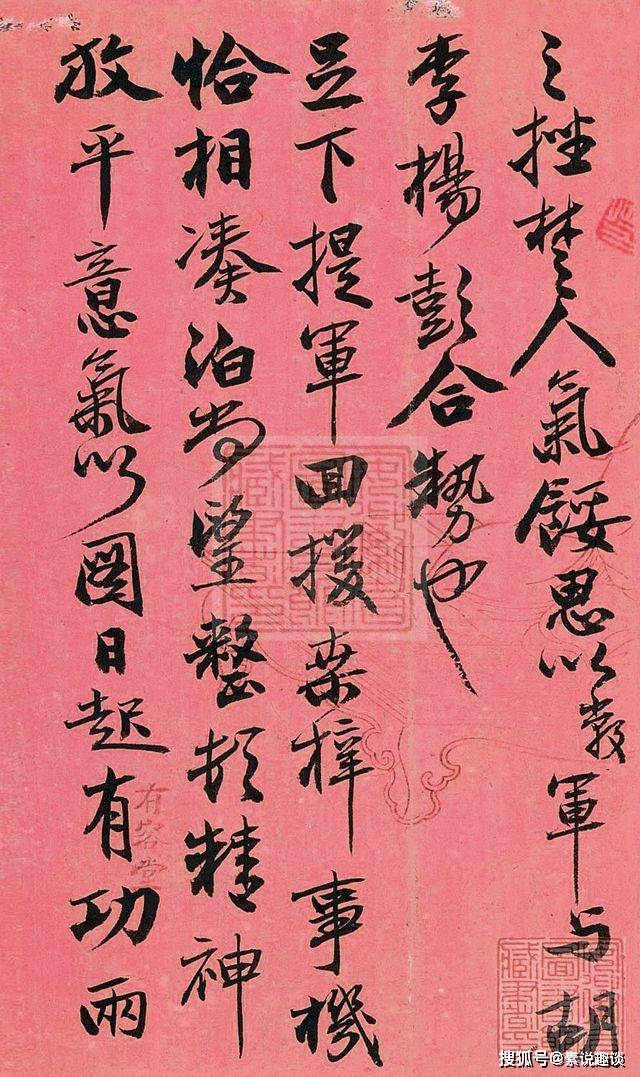 之挫楚人氣餒思以敝軍与胡
李楊彭合勢也
足下提軍回援桑梓事機
恰相湊泊尚望整頓精神
放平意氣以圖日起有功雨
有容堂
搜狐号@素说趣谈